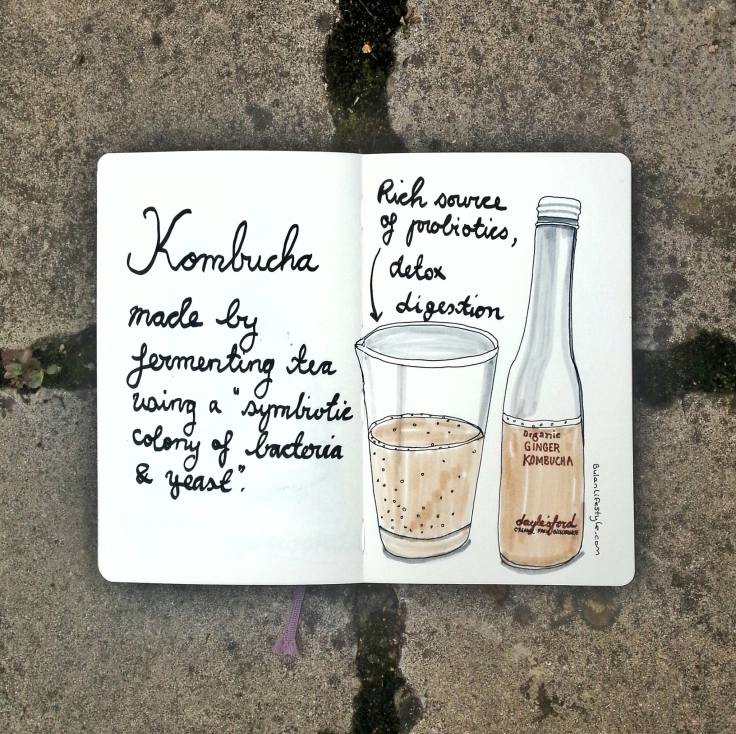 Kombucha
made by
fermenting tea
using a "symbiotic
colony of bacteria
& yeast".
Rich source
of probiotics,
detox
digestion
Organic
GINGER
KOMBUCHA
daylesford
BulanLifestyle.com